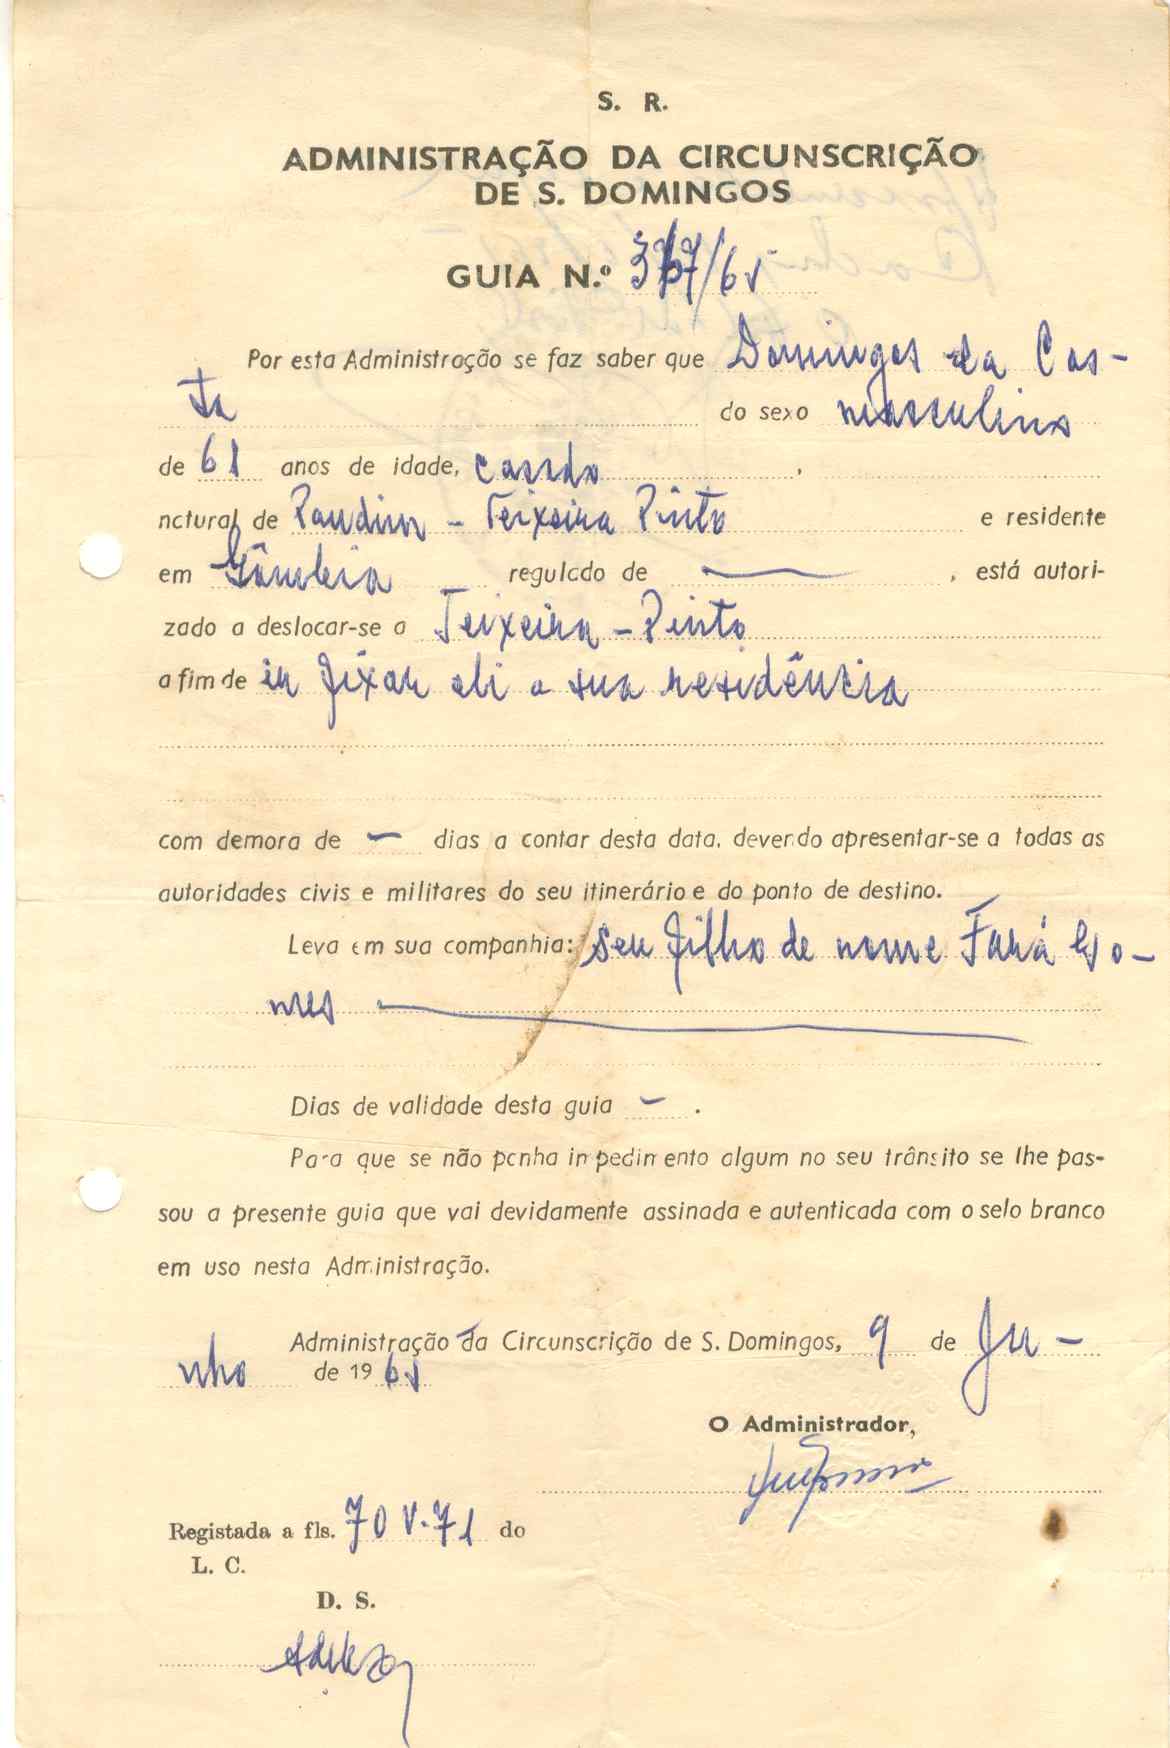 S. R.
ADMINISTRAÇÃO DA CIRCUNSCRIÇÃO
DE S. DOMINGOS
GUIA N.º 367/61
Por esta Administração se faz saber que Domingos da Cos-
ta do sexo masculino
de 61 anos de idade, casado ,
natural de Pandim - Teixeira Pinto e residente
em Gâmbia regulado de — , está autori-
zado a deslocar-se a Teixeira - Pinto
a fim de ir fixar ali a sua residência
com demora de — dias a contar desta data, devendo apresentar-se a todas as
autoridades civis e militares do seu itinerário e do ponto de destino.
Leva em sua companhia: seu filho de nome Fará Go-
mes
Dias de validade desta guia — .
Para que se não ponha impedimento algum no seu trânsito se lhe pas-
sou a presente guia que vai devidamente assinada e autenticada com o selo branco
em uso nesta Administração.
Administração da Circunscrição de S. Domingos, 9 de Ju-
nho de 1961
O Administrador,
Registada a fls. 70 V.71 do
L. C.
D. S.